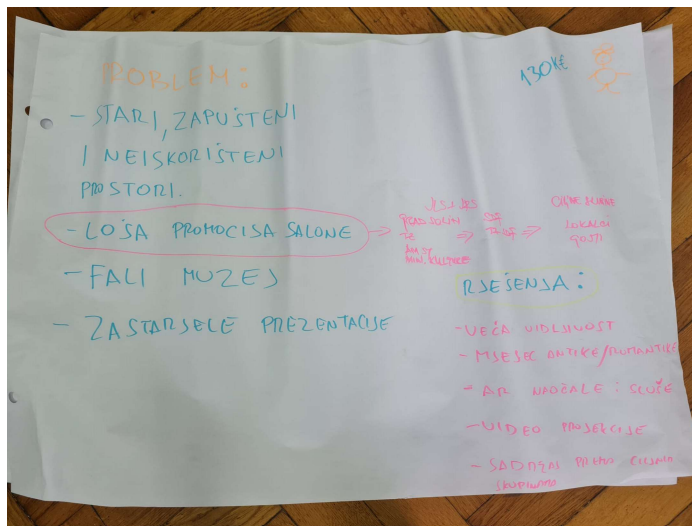 PROBLEM:
130K€
- STARI, ZAPUŠTENI
I NEISKORIŠTENI
PROSTORI.
- LOŠA PROMOCIJA SALONE
- FALI MUZEJ
- ZASTARJELE PREZENTACIJE
GRAD SOLIN
MIN. KULTURE
CILJNE
LOKALCI
GOSTI
RJEŠENJA:
- VEĆA VIDLJIVOST
- MJESEC ANTIKE/ROMANTIKE
- AR NAOČALE
- VIDEO PROJEKCIJE
- SADRŽAJ PREMA CILJNIM
SKUPINAMA